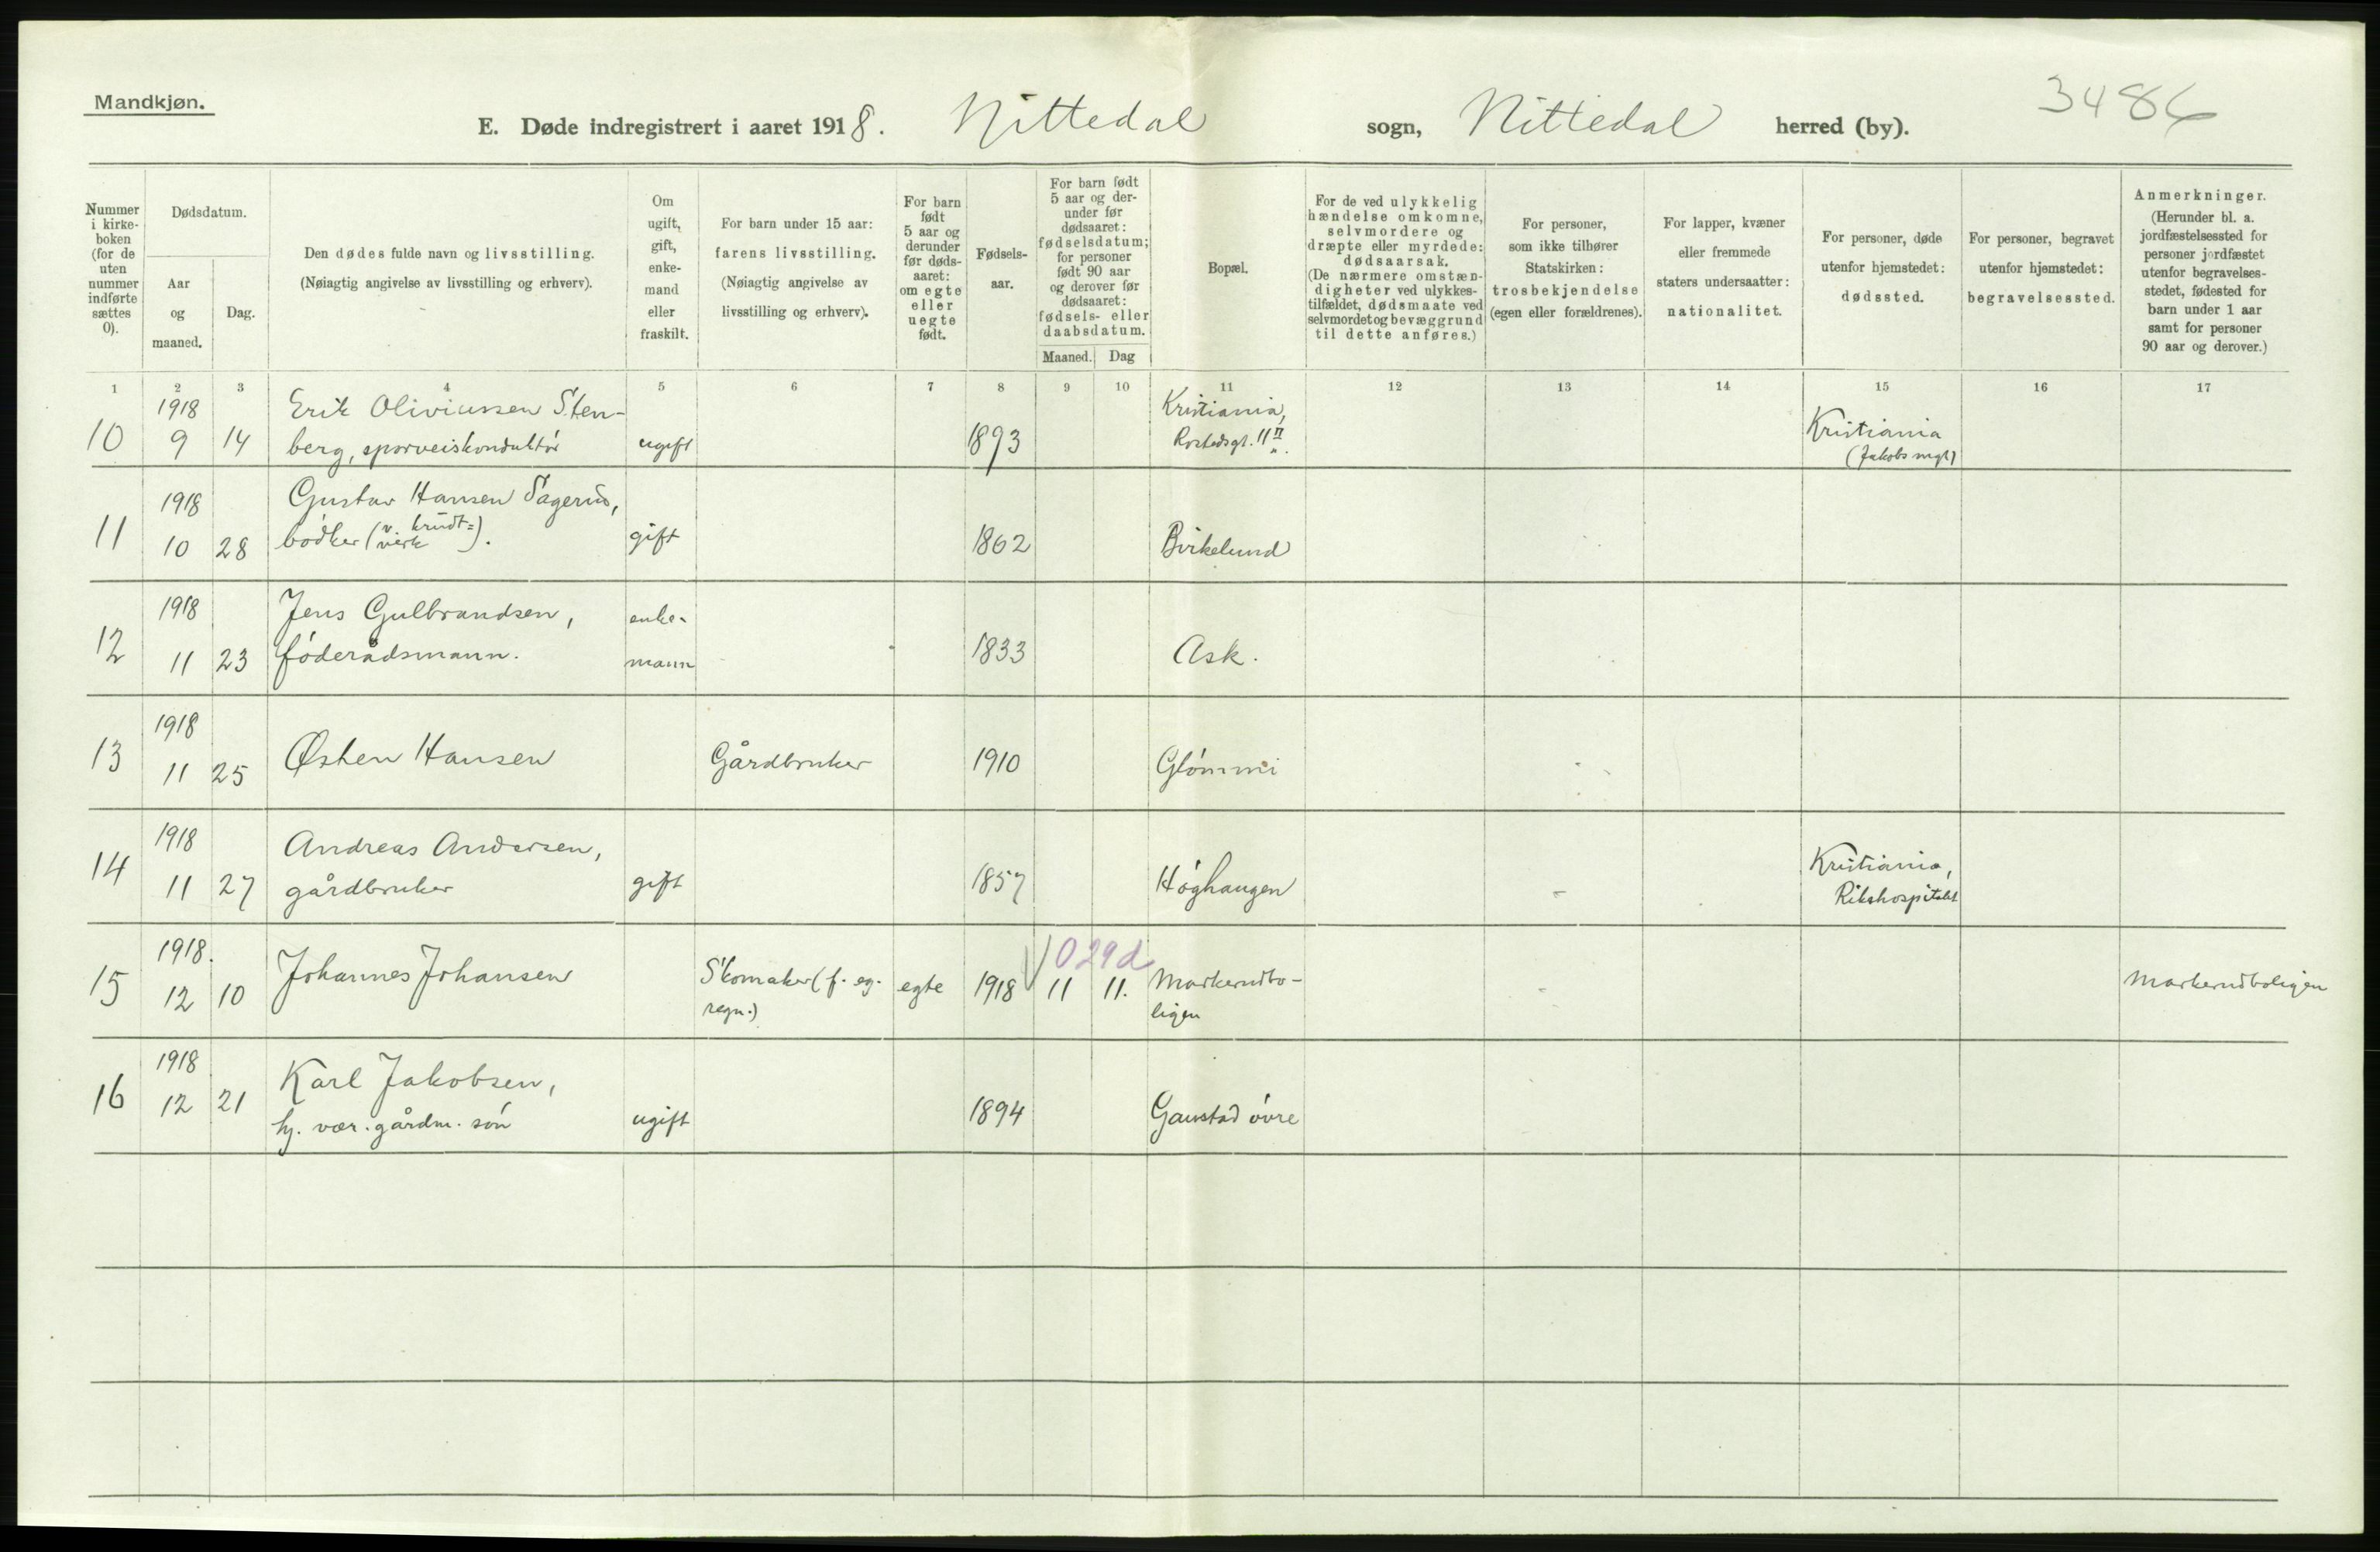 Mandkjøn.
3486
E. Døde indregistrert i aaret 1918. Nittedal sogn, Nittedal herred (by).
Nummer
i kirke-
boken
(for de
uten
nummer
indførte
sættes
0).
Dødsdatum.
Aar
og
maaned.
Dag.
Den dødes fulde navn og livsstilling.
(Nøiagtig angivelse av livsstilling og erhverv).
Om
ugift,
gift,
enke-
mand
eller
fraskilt.
For barn under 15 aar:
farens livsstilling.
(Nøiagtig angivelse av
livsstilling og erhverv).
For barn
født
5 aar og
derunder
før døds-
aaret:
om egte
eller
uegte
født.
Fødsels-
aar.
For barn født
5 aar og der-
under før
dødsaaret:
fødselsdatum;
for personer
født 90 aar
og derover før
dødsaaret:
fødsels- eller
daabsdatum.
Maaned. Dag
Bopæl.
For de ved ulykkelig
hændelse omkomne,
selvmordere og
dræpte eller myrdede:
dødsaarsak.
(De nærmere omstæn-
digheter ved ulykkes-
tilfældet, dødsmaate ved
selvmordet og bevæggrund
til dette anføres.)
For personer,
som ikke tilhører
Statskirken:
trosbekjendelse
(egen eller forældrenes).
For lapper, kvæner
eller fremmede
staters undersaatter:
nationalitet.
For personer, døde
utenfor hjemstedet:
dødssted.
For personer, begravet
utenfor hjemstedet:
begravelsessted.
Anmerkninger.
(Herunder bl. a.
jordfæstelsessted for
personer jordfæstet
utenfor begravelses-
stedet, fødested for
barn under 1 aar
samt for personer
90 aar og derover.)
1 2 3 4 5 6 7 8 9 10 11 12 13 14 15 16 17
1918 Erik Oliviussen Sten- Kristiania,
10 9 14 berg, sporveiskonduktør ugift 1893 11 II Kristiania
(Jakobs mgh)
1918 Gustav Hansen Sagerud,
11 10 28 bødker (v. krudt=
verk). gift 1862 Birkelund
1918 Jens Gulbrandsen, enke-
12 11 23 föderådsmann. mann 1833 Ask.
1918
13 11 25 Østen Hansen Gårdbruker 1910 Glömmi
1918 Andreas Andersen, Kristiania,
14 11 27 gårdbruker gift 1857 Höghaugen Rikshospitalet
1918. 0 29 d
15 12 10 Johannes Johansen Skomaker (f. eg. egte 1918 11 11. Markerudbo- Markerudboligen
regn.) ligen
1918 Karl Jakobsen,
16 12 21 hj. vær. gårdm. sön ugift 1894 Gaustad övre